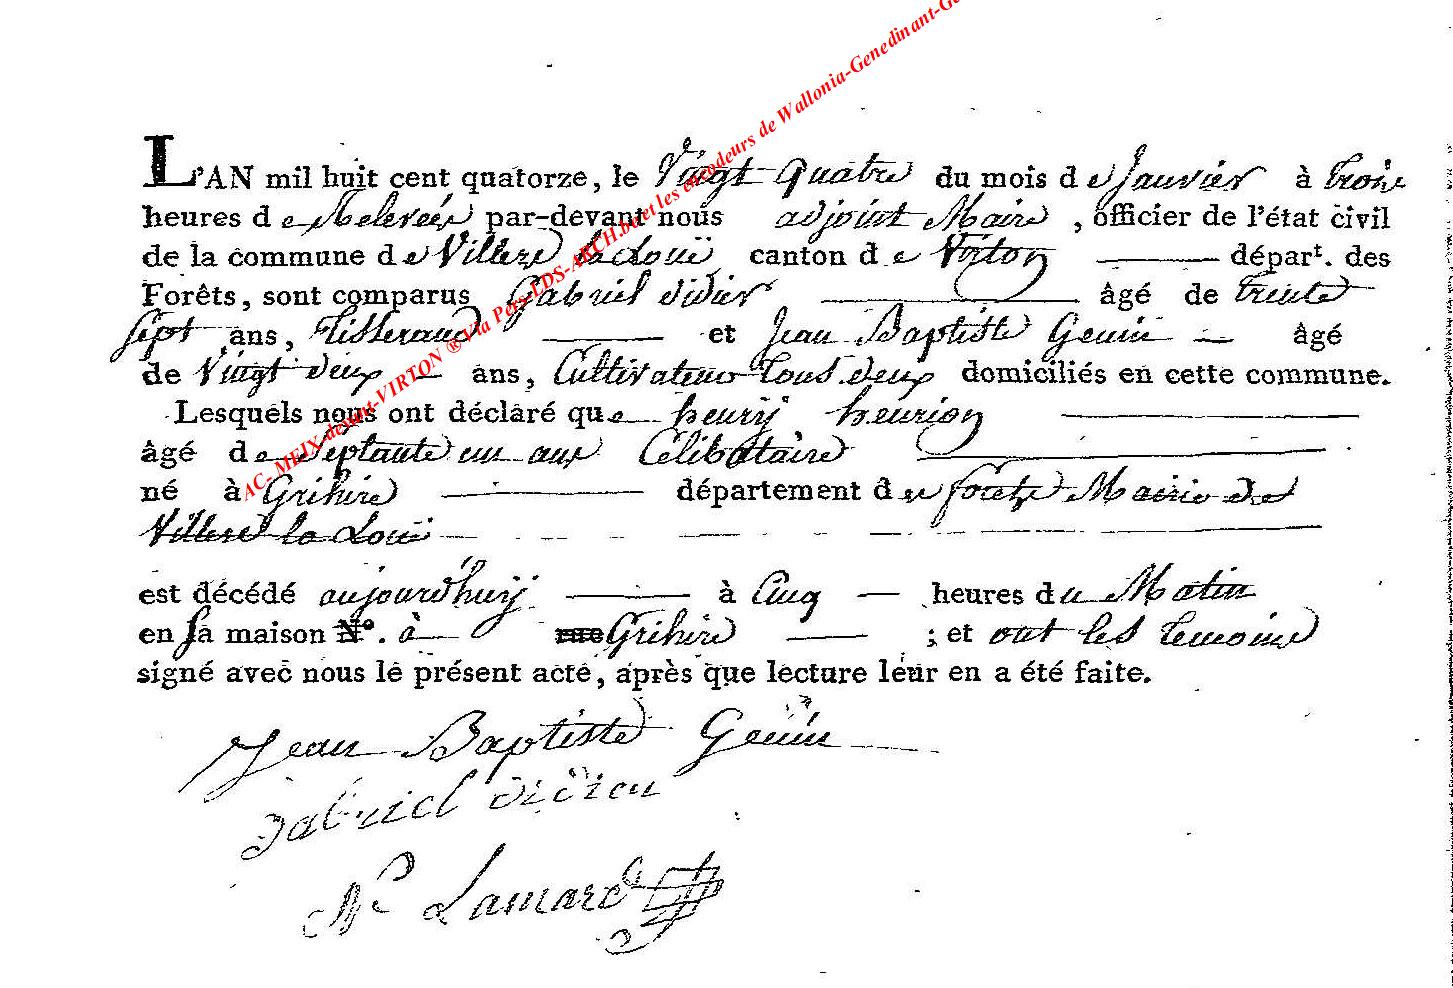 L'AN mil huit cent quatorze, le Vingt Quatre du mois de Janvier à trois
heures de Relevée par-devant nous adjoint Maire, officier de l'état civil
de la commune de Villere la Loüe canton de Virton départ. des
Forêts, sont comparus Gabriel didier âgé de trente
sept ans, tisserand et Jean Baptiste Genin âgé
de Vingt deux ans, Cultivateur tous deux domiciliés en cette commune.
Lesquels nous ont déclaré que henrij henrion
âgé de Septante un ans Célibataire
né à Grihire département de forets Mairie de
Villere la Loüe
est décédé aujourd'huij à Cinq heures du Matin
en sa maison N°. à rue Grihire ; et ont les temoins
signé avec nous le présent acte, après que lecture leur en a été faite.
Jean Baptiste Genin
gabriel didier
AC- MEIX-devant-VIRTON ® Via Pers-LDS-ARCH.be et les encodeurs de Wallonia-Genedinant-Ge